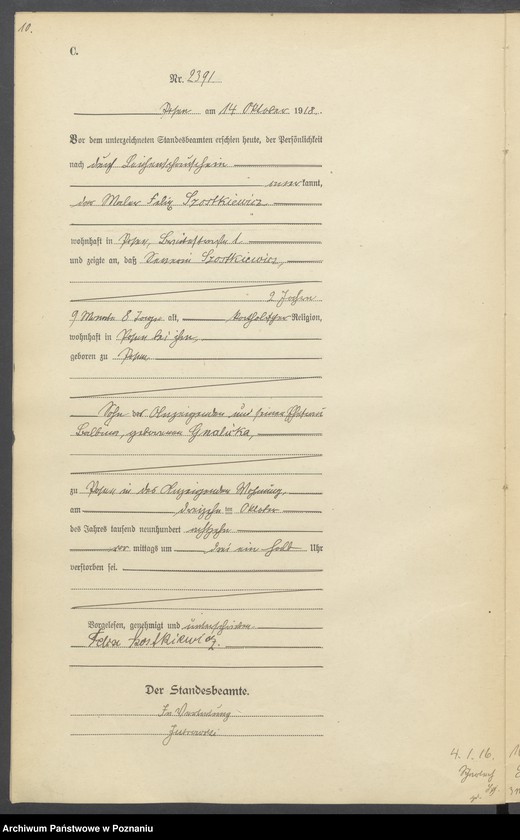 10.
C.
Nr. 2391
Posen am 14 Oktober 1918.
Vor dem unterzeichneten Standesbeamten erschien heute, der Persönlichkeit
nach durch Leichenschauschein
kannt,
der Maler Felix Szostkiewicz,
wohnhaft in Posen, Breitestraße 1
und zeigte an, daß Severin Szostkiewicz,
2 Jahre
9 Monate 8 Tage alt, katholischer Religion,
wohnhaft in Posen bei ihm,
geboren zu Posen
Sohn des Anzeigenden und seiner Ehefrau
Balbina, geborenen
zu Posen in des Anzeigenden Wohnung,
am dreizehn ten Oktober
des Jahres tausend neunhundert achtzehn
vor mittags um drei ein halb Uhr
verstorben sei.
Vorgelesen, genehmigt und unterschrieben
Felix Szostkiewicz.
Der Standesbeamte.
In Vertretung
4. 1. 16.
Archiwum Państwowe w Poznaniu